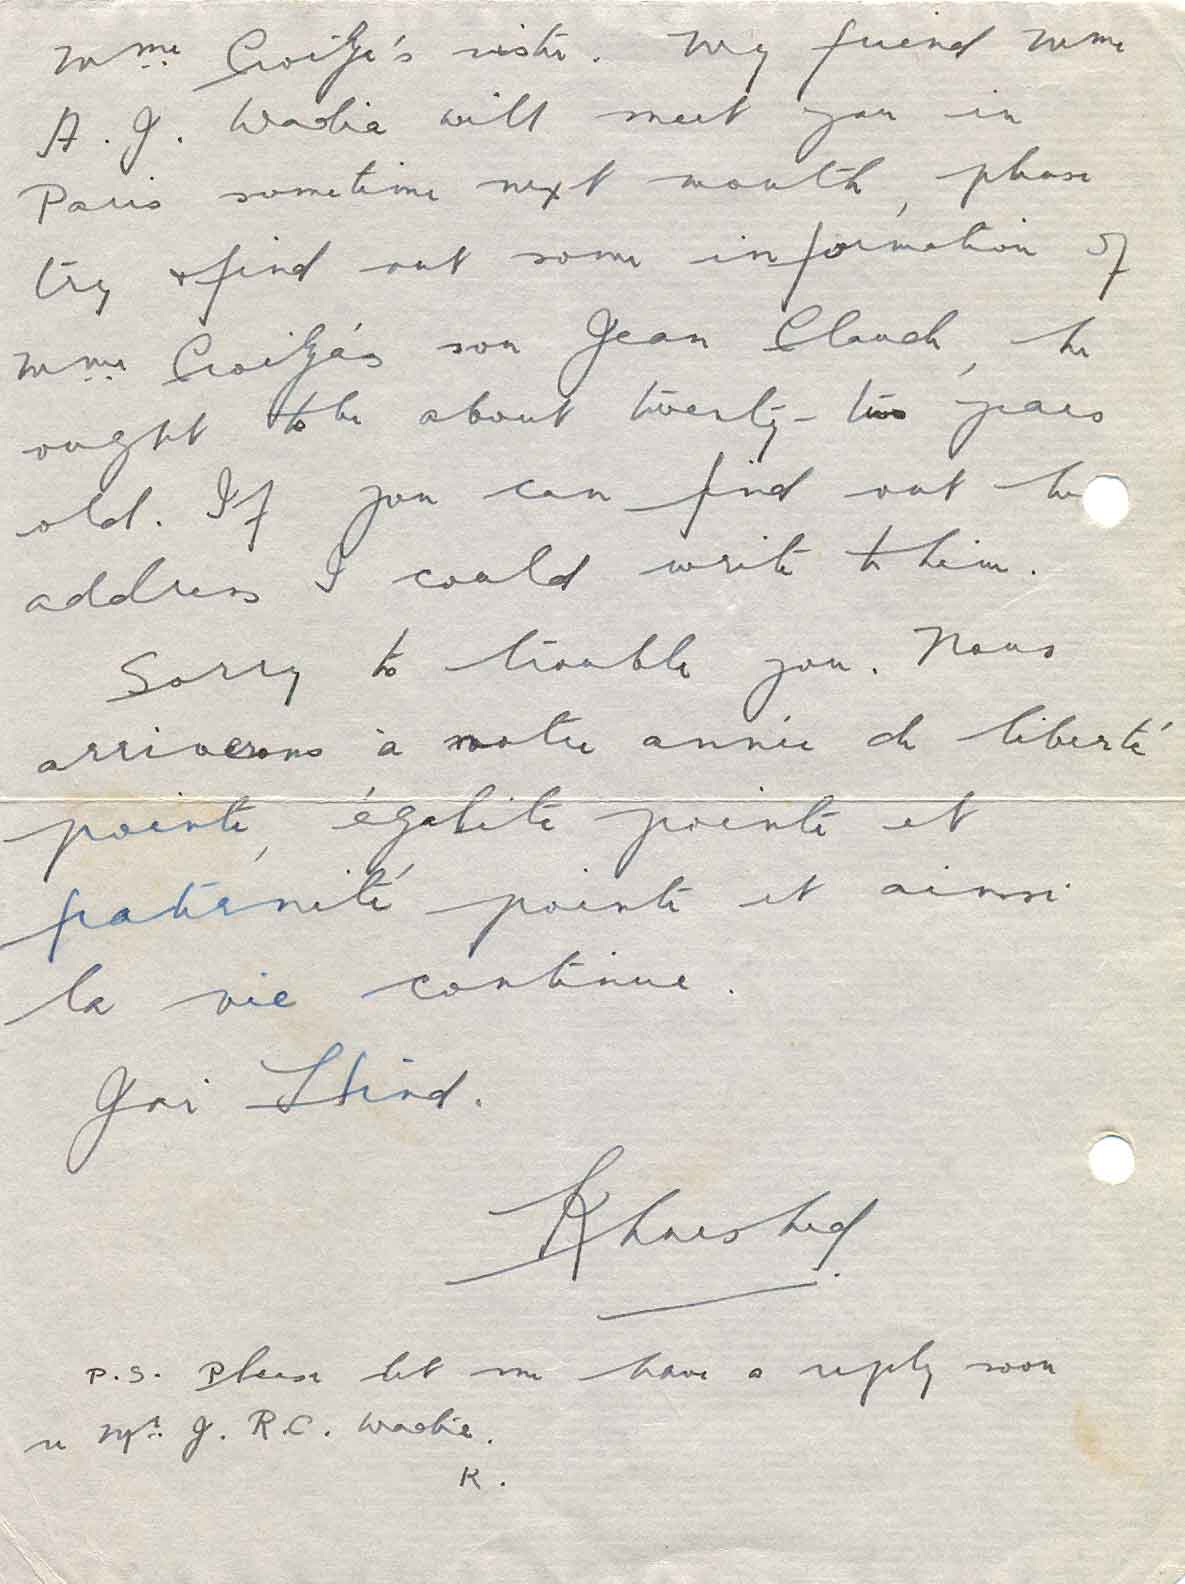 Mme Croiza's sister. My friend Mme
A. J. Wadia will meet you in
Paris sometime next month, please
try & find out some information of
Mme Croiza's son Jean Claude, he
ought to be about twenty-two years
old. If you can find out his
address I could write to him.
Sorry to trouble you. Nous
arriverons à notre année de liberté
pointe, égalité pointe et
fraternité pointe et ainsi
la vie continue.
Jai Hind.
Khurshed.
P.S. Please let me have a reply soon
Mr. J. R.C. Wadia.
K.